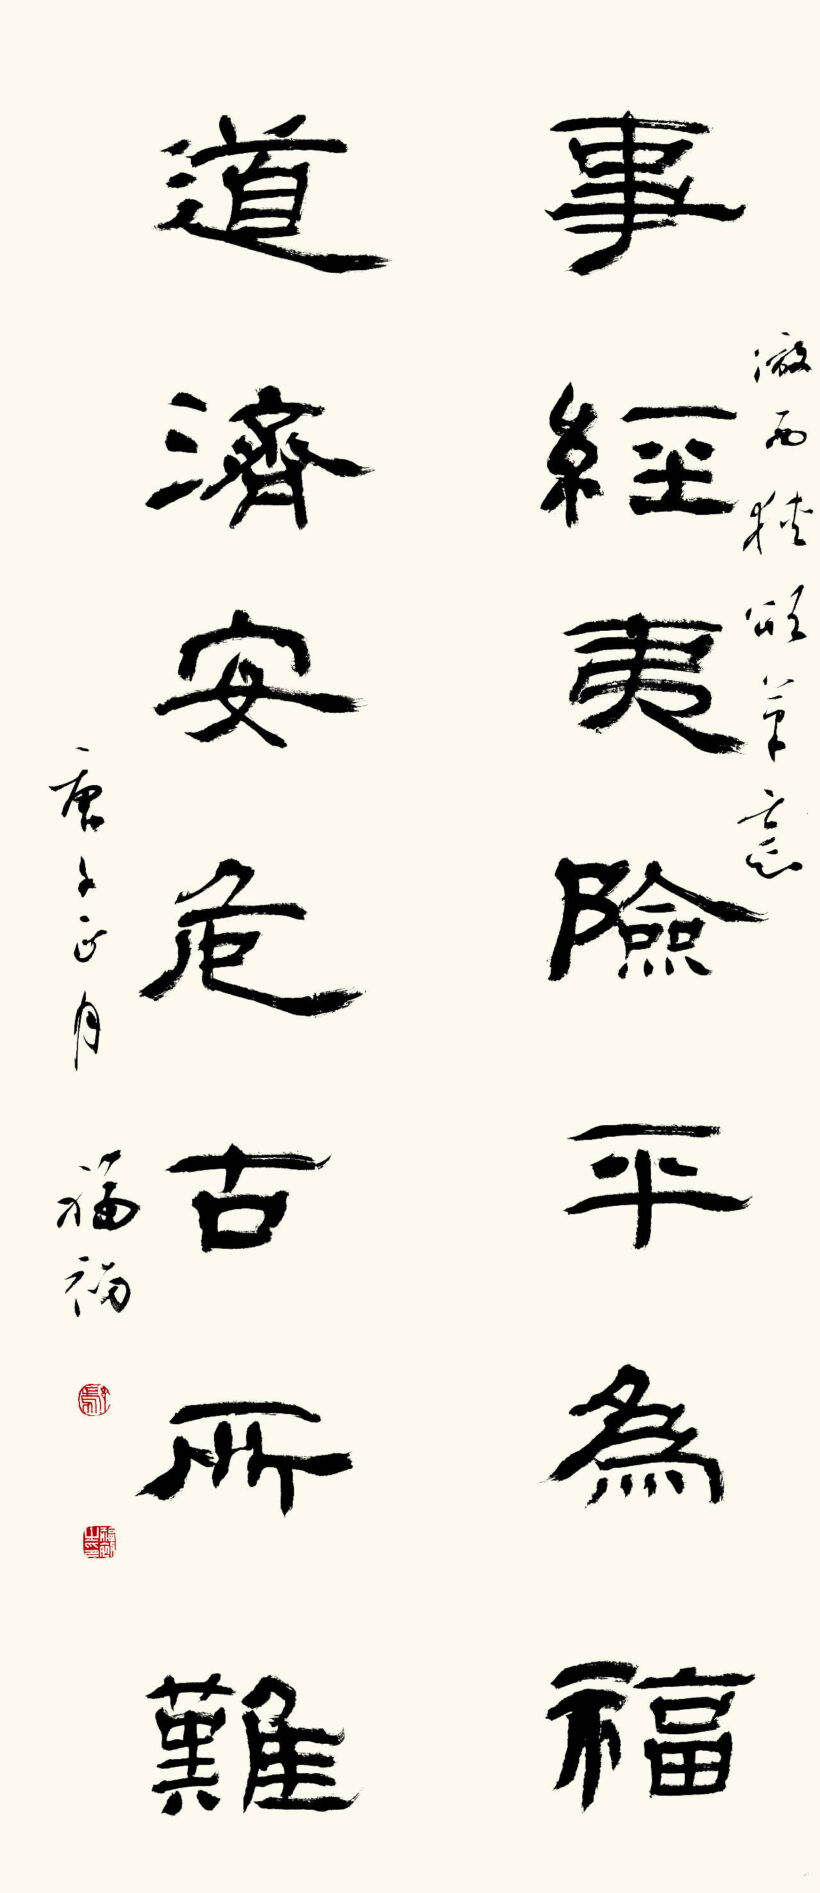 事經夷險平為福
道濟安危古所難
西狹頌筆意
庚子正月
福